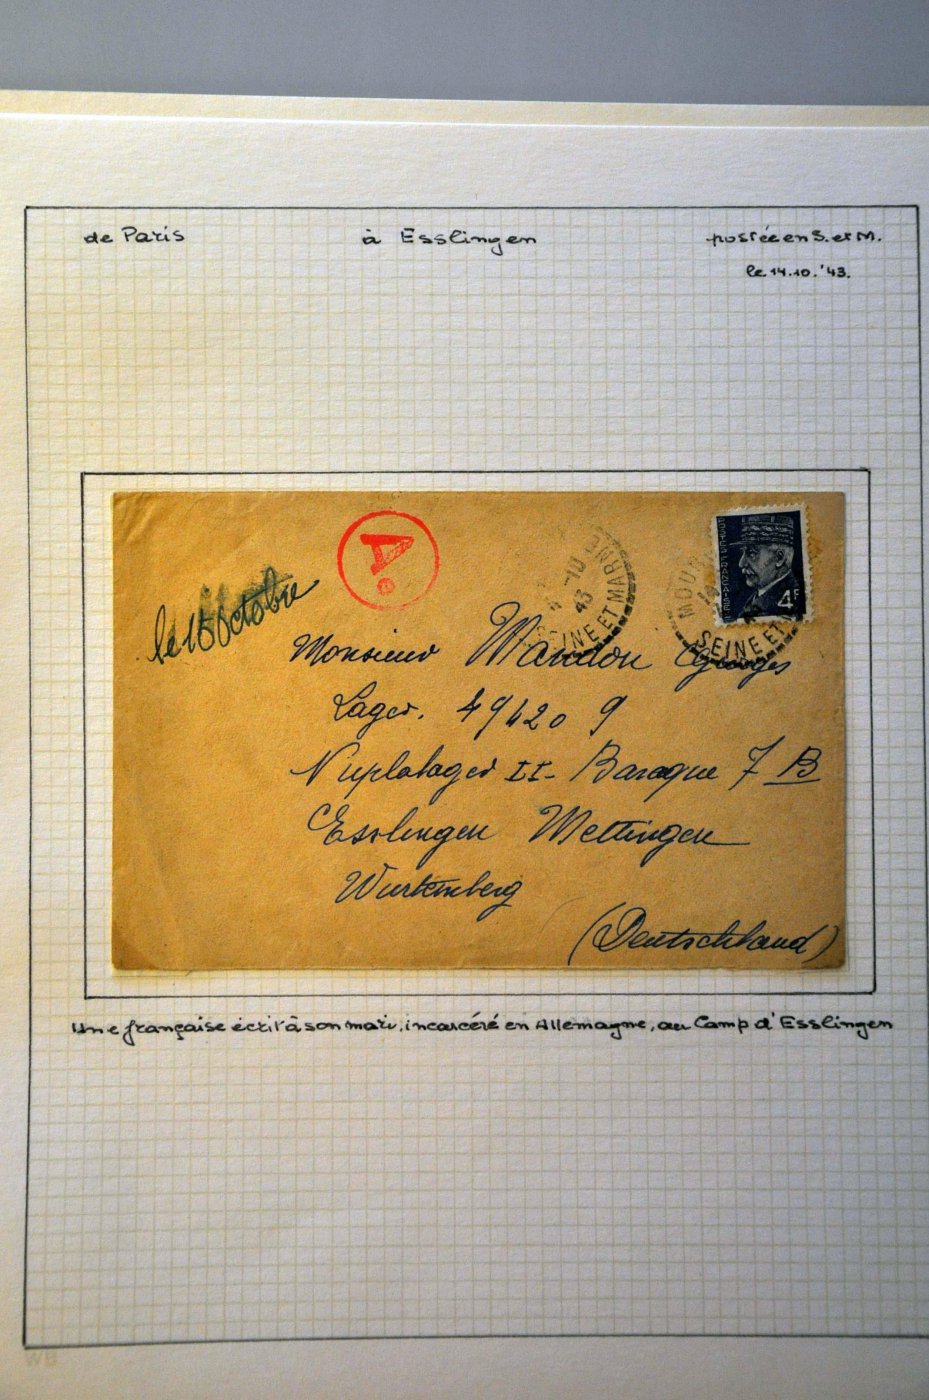 de Paris à Esslingen postée en S. et M.
le 14.10.'43.
A
POSTES FRANÇAISES
4F
SEINE ET MARNE
43
SEINE ET
le 16 Octobre
Monsieur Mandon Georges
Lager. 49420 9
II- Baraque 7 B
Esslingen Mettingen
Wurtemberg
(Deutschland)
Une française écrit à son mari, incarcéré en Allemagne, au Camp d'Esslingen
WB